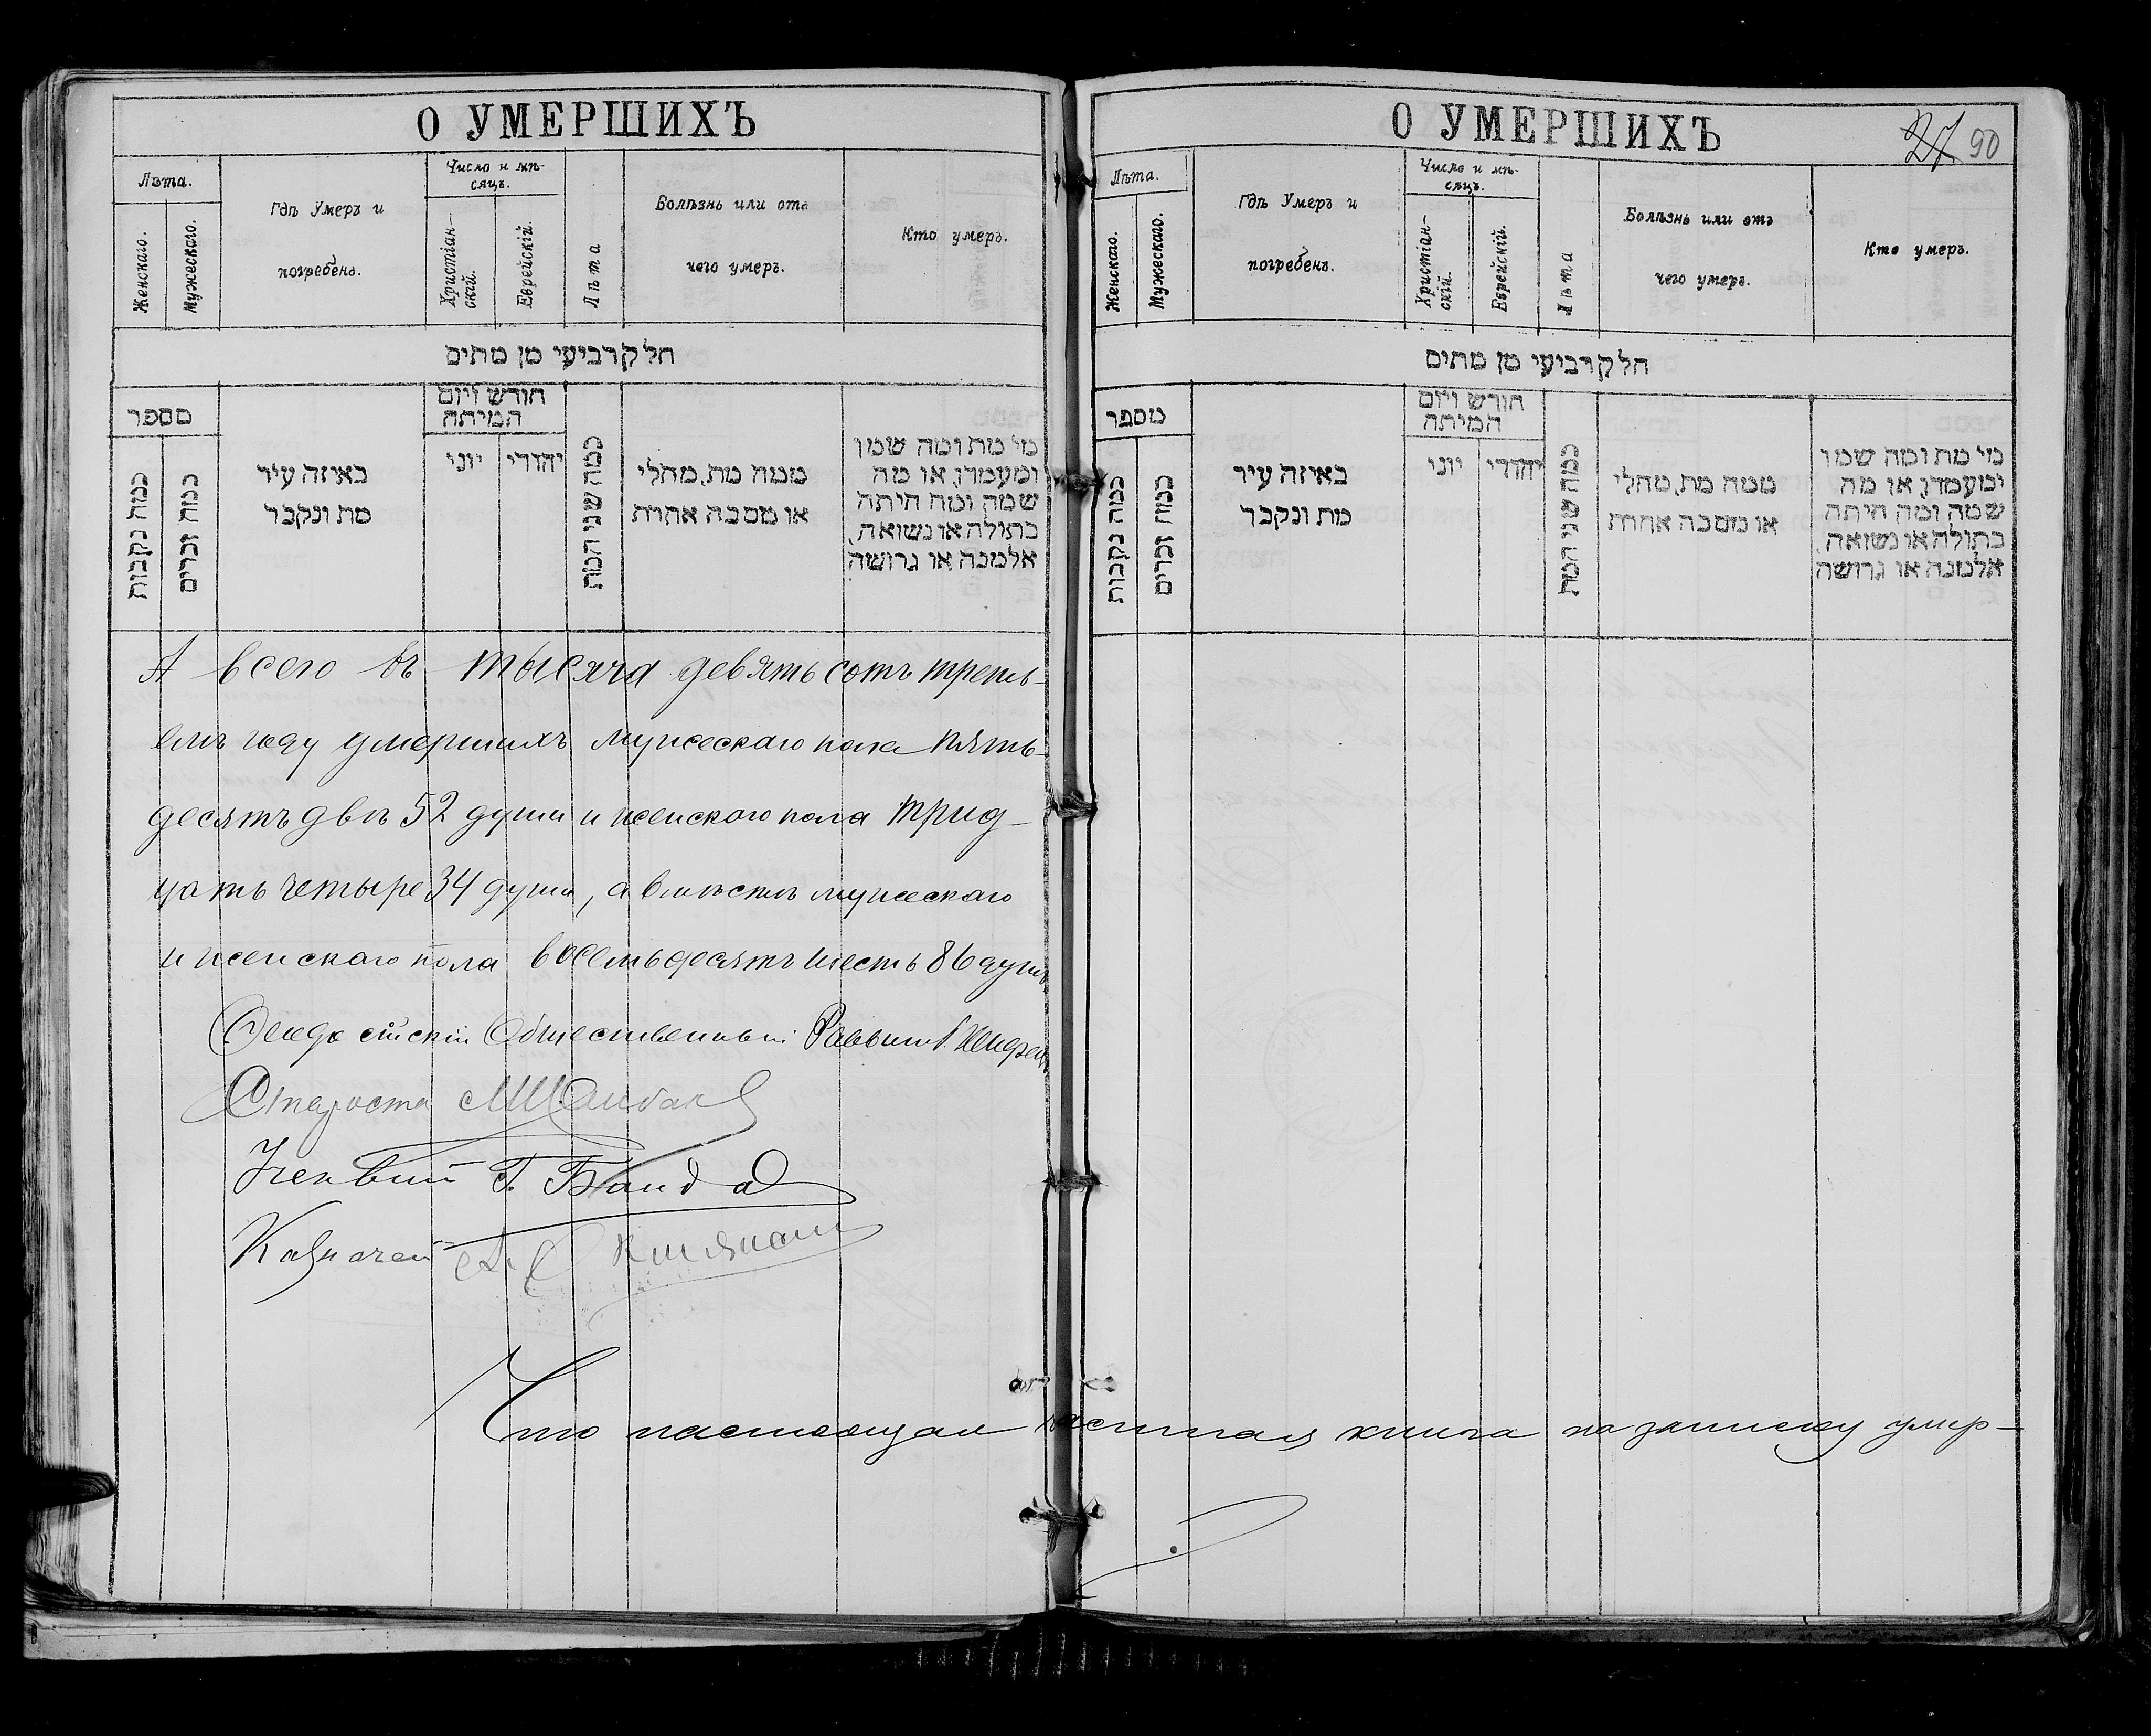 О УМЕРШИХЪ
Лѣта.
Женскаго.
Мужескаго.
Гдѣ Умеръ и
погребенъ.
Число и мѣ-
сяцъ.
Христіан-
скій.
Еврейскій.
Лѣта
Болѣзнь или отъ
чего умеръ.
Кто умеръ.
חלק רביעי מן מתים
מספר
כמה נקבות
כמה זכרים
באיזה עיר
מת ונקבר
חודש ויום
המיתה
יוני
יהודי
כמה שני המת
ממה מת, מחלי
או מסבה אחרת
מי מת ומה שמו
ומעמדו, או מה
שמה ומה היתה
בתולה או נשואה,
אלמנה או גרושה
А всего въ тысяча девять сотъ треть-
емъ году умершихъ мужескаго пола пять-
десятъ двѣ 52 души и женскаго пола трид-
цать четыре 34 души, а вмѣстѣ мужескаго
и женскаго пола восемьдесятъ шесть 86 душъ
Ѳеодосійскій Общественный Раввинъ
Староста
Ученый Г.
Казначей
Что настоящая частная книга на записку умер-
О УМЕРШИХЪ
27 90
Лѣта.
Женскаго.
Мужескаго.
Гдѣ Умеръ и
погребенъ.
Число и мѣ-
сяцъ.
Христіан-
скій.
Еврейскій.
Лѣта
Болѣзнь или отъ
чего умеръ.
Кто умеръ.
חלק רביעי מן מתים
מספר
כמה נקבות
כמה זכרים
באיזה עיר
מת ונקבר
חודש ויום
המיתה
יוני
יהודי
כמה שני המת
ממה מת, מחלי
או מסבה אחרת
מי מת ומה שמו
ומעמדו, או מה
שמה ומה היתה
בתולה או נשואה,
אלמנה או גרושה